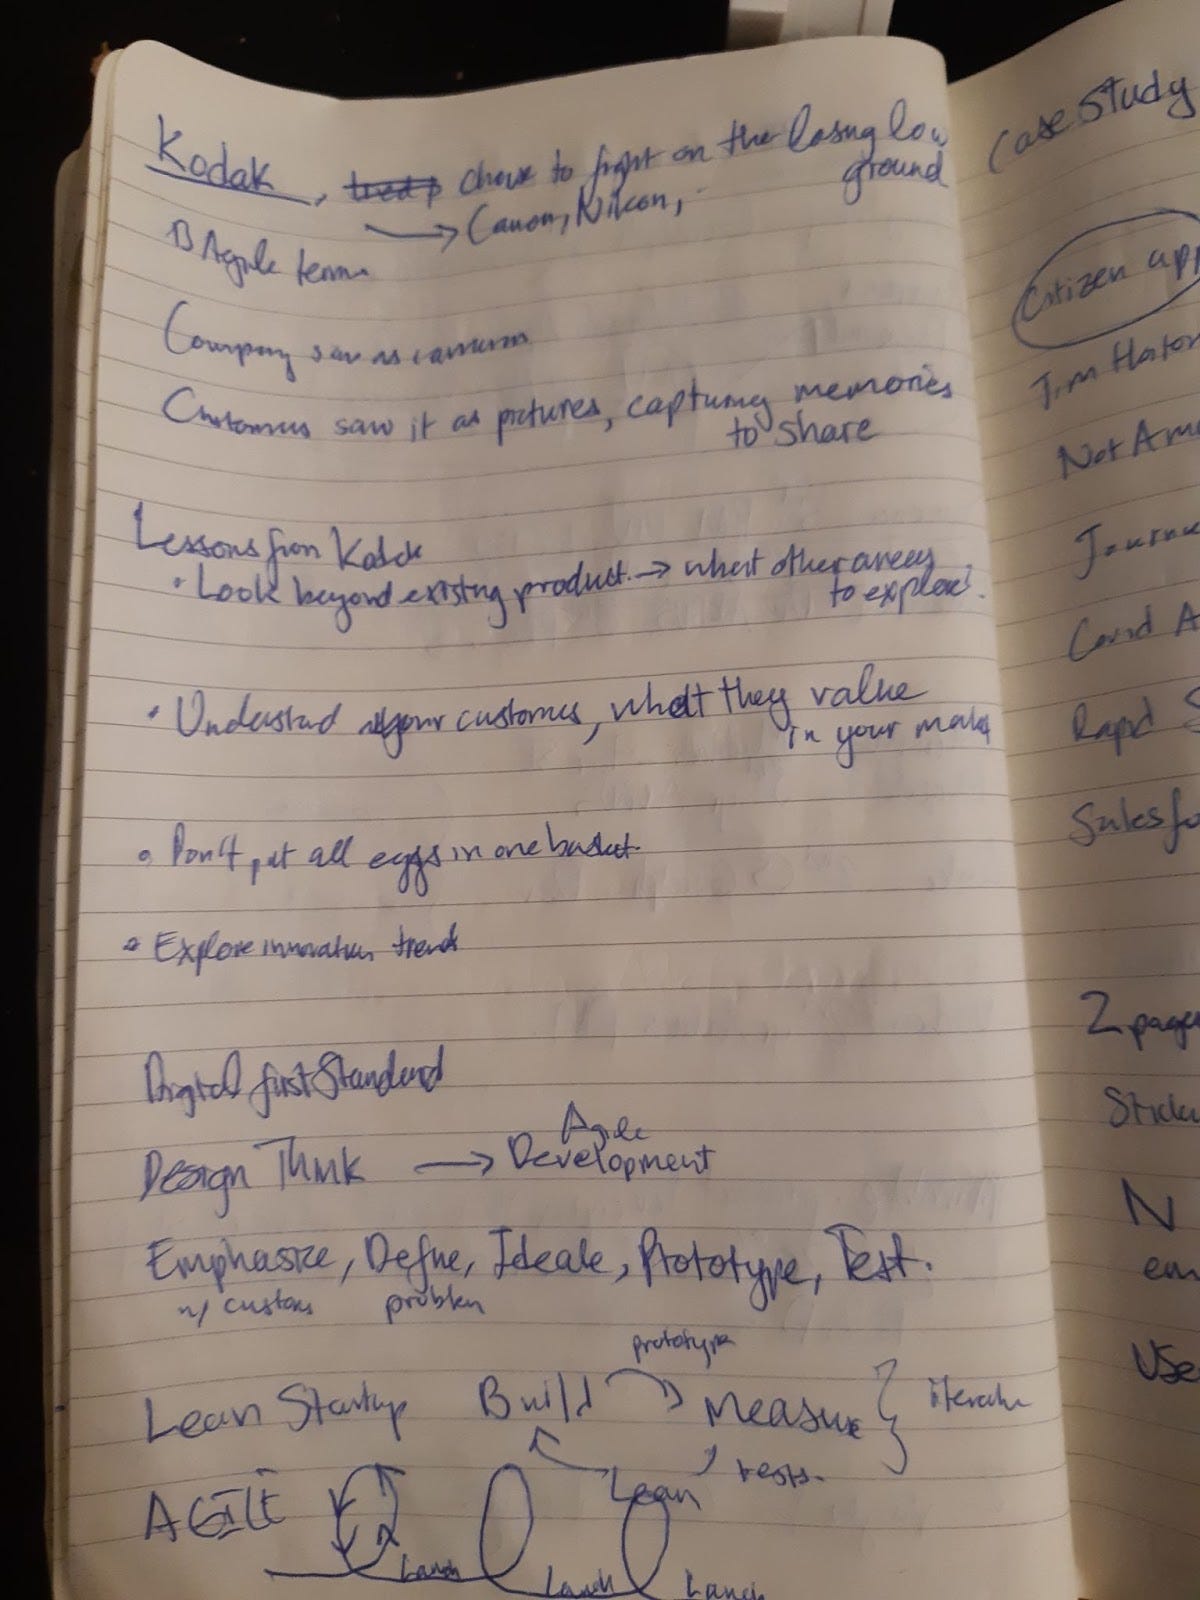 Kodak, chose to fight on the losing low
ground
→ Canon, Nikon,
Agile team
Company saw as cameras
Customers saw it as pictures, capturing memories
to share
Lessons from Kodak
• Look beyond existing product → what other areas
to explore?
• Understand your customers, what they value
in your market
• Don't put all eggs in one basket.
• Explore innovation trends
Digital first Standard
Agile
Design Think → Development
Emphasize, Define, Ideate, Prototype, Test.
w/ customers problem
prototype
Lean Startup Build Measure iterate
Lean tests.
AGILE
Launch Launch Launch
Case Study
Citizen app
Not Am
Journ
Covid A
Rapid S
Salesfo
2 page
N
em
Use